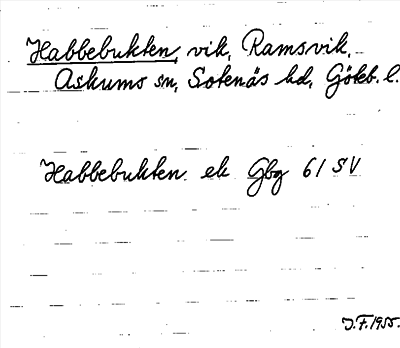 Habbebukten, vik, Ramsvik,
Askums sn, Sotenäs hd, Göteb. l.
Habbebukten ek Gbg 61 SV
J.F. 1955.